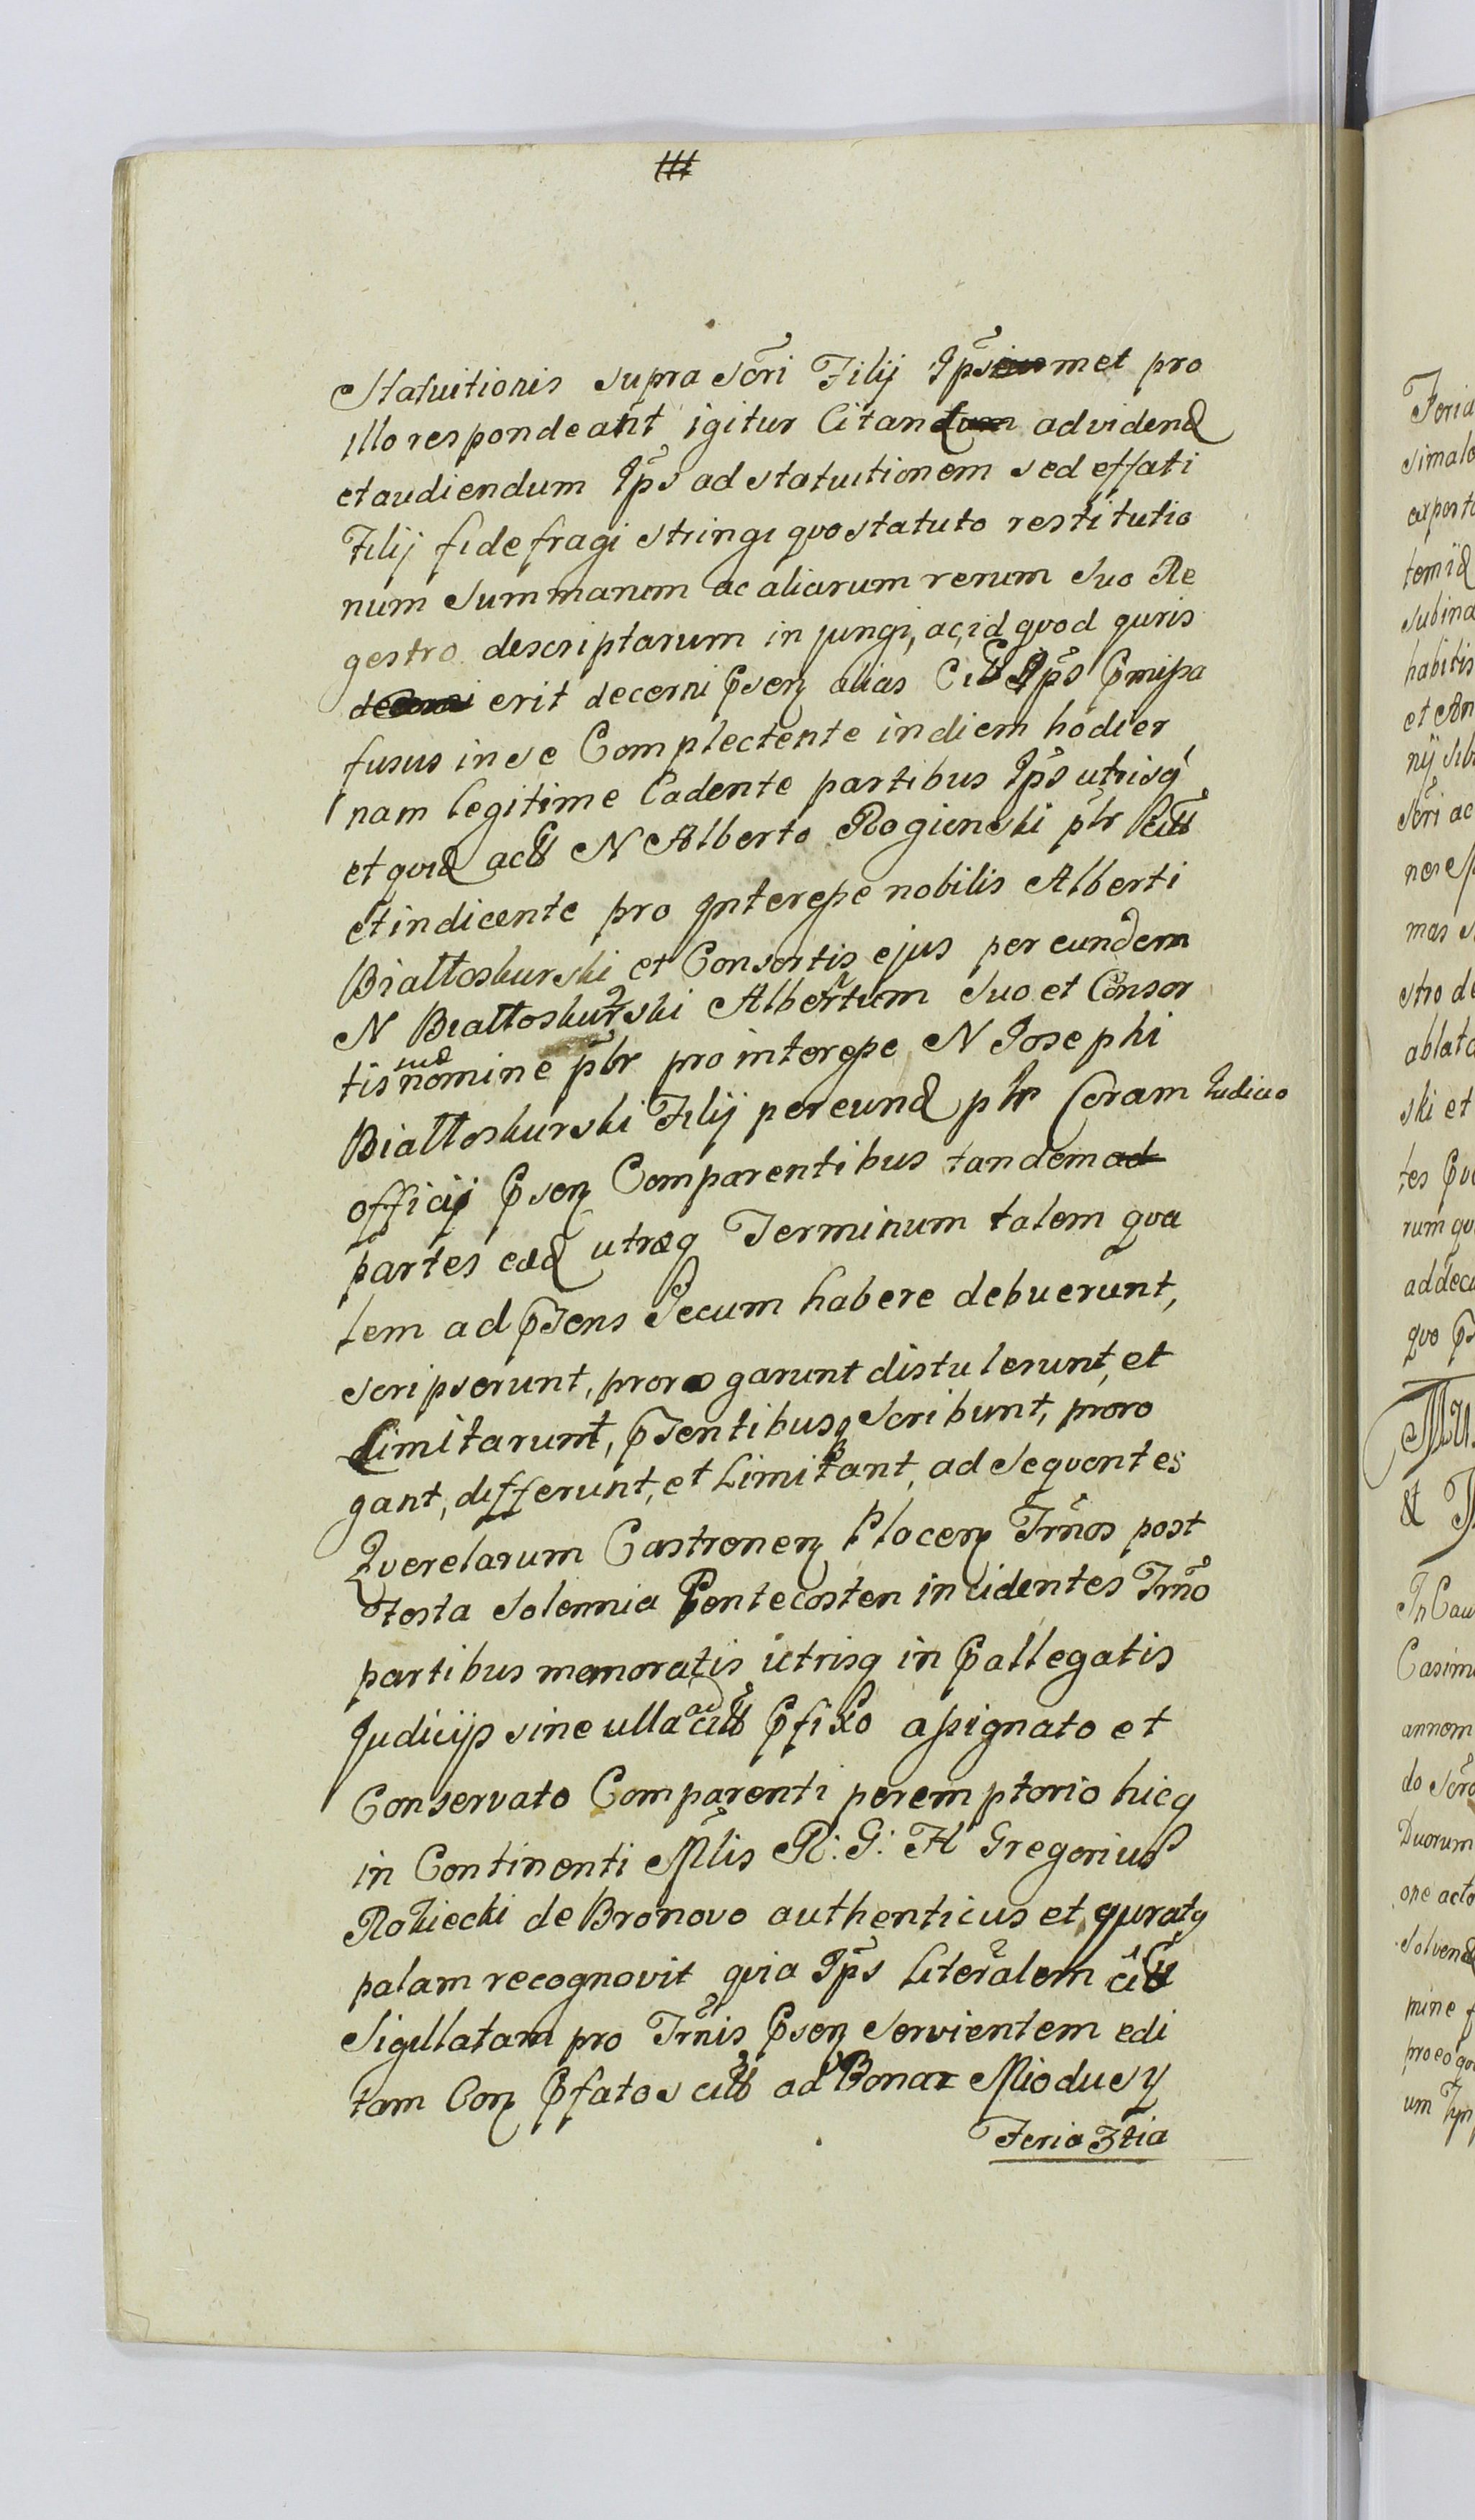 Statuitionis supra Scri Filij Ipsiusmet pro
illo respondeant igitur Citandum ad vidend
et audiendum Ips ad statuitionem sed effati
Filij fidefragi stringi quo statuto restitutio
num Summarum ac aliarum rerum suo Re
gestro descriptarum in jungi, ac, id quod juris
erit decerni Psen alias Citt Ips Pmissa
fusus in se Complectente in diem hodier
nam legitime Cadente partibus Ips utrisq
et quid actt N Alberto Rogienski plr citt
et indicente pro Interesse nobilis Alberti
Białłoskurski et Consortis ejus per eundem
N Białłoskurski Albertum suo et Consor
tis suae nomine plr pro interesse N Josephi
Białłoskurski Filij per eund plr Coram Iudicio
officij Psen Comparentibus tandem ad
partes eaed utraeq Terminum talem qua
lem ad Psens Secum habere debuerunt,
scripserunt, prorogarunt distulerunt, et
Limitarunt, Psentibusq Scribunt, proro
gant, differunt, et Limitant, ad Sequentes
Querelarum Castronen Plocen Trnos post
Festa Solennia Pentecosten incidentes Trno
partibus memoratis utrisq in Pallegatis
Judicijs sine ulla citt Pfixo assignato et
Conservato Comparenti peremptorio hicq
in Continenti Mlis R: G: H Gregorius
Rokicki de Bronovo authenticus et juratq
palam recognovit quia Ips Literalem citt
Sigillatam pro Trnis Psen Servientem edi
tam Con Pfatos citt ad Bona Miodusy
Feria 3tia